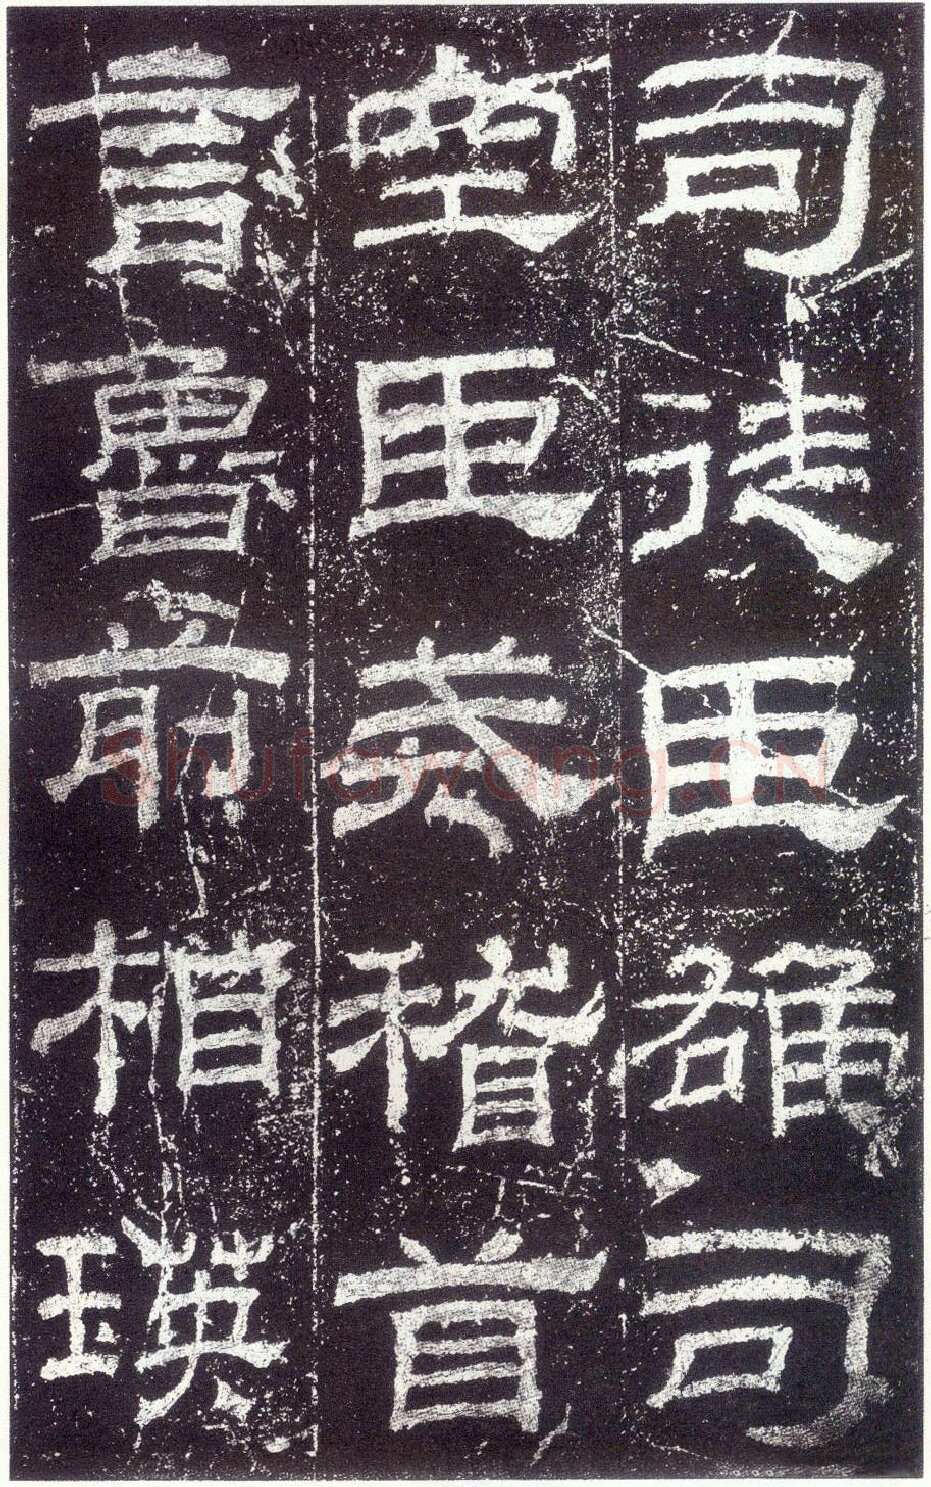 司徒臣雄司
空臣戒稽首
言魯前相瑛
Shufawang.CN